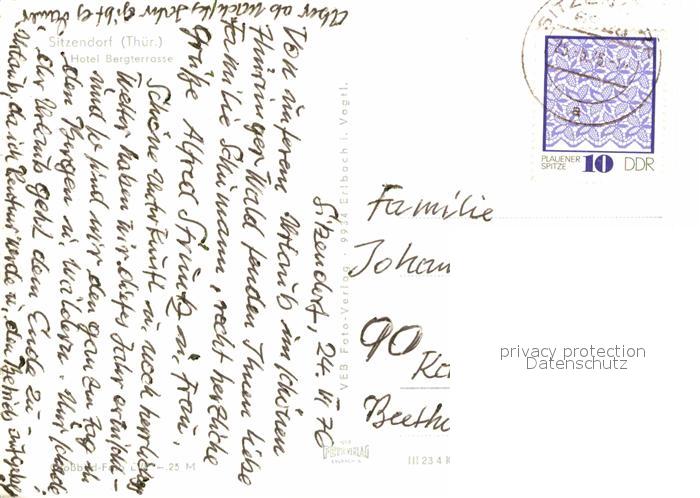 Sitzendorf (Thür.)
Hotel Bergterrasse
Sitzendorf, 24. VI 76
Von unserem Urlaub im schönen
Thüringer Wald senden Ihnen liebe
Familie Schumann, recht herzliche
Grüße Alfred u. Frau.
Schöne Unterkunft u. noch herrlicheres
Wetter haben wir dieses Jahr erwischt
und so sind wir den ganzen Tag in
den Bergen u. Wäldern. Nur schade
der Urlaub geht dem Ende zu -
Urlaub, da ich Rentner werde u. den Betrieb
Aber ob nächstes Jahr gibt es
VEB Foto-Verlag · 9934 Erlbach i. Vogtl.
Familie
Johan
90
Beetho
PLAUENER
SPITZE
10 DDR
SITZEN
privacy protection
Datenschutz
FOTO-VERLAG
III 23 4
-.25 M